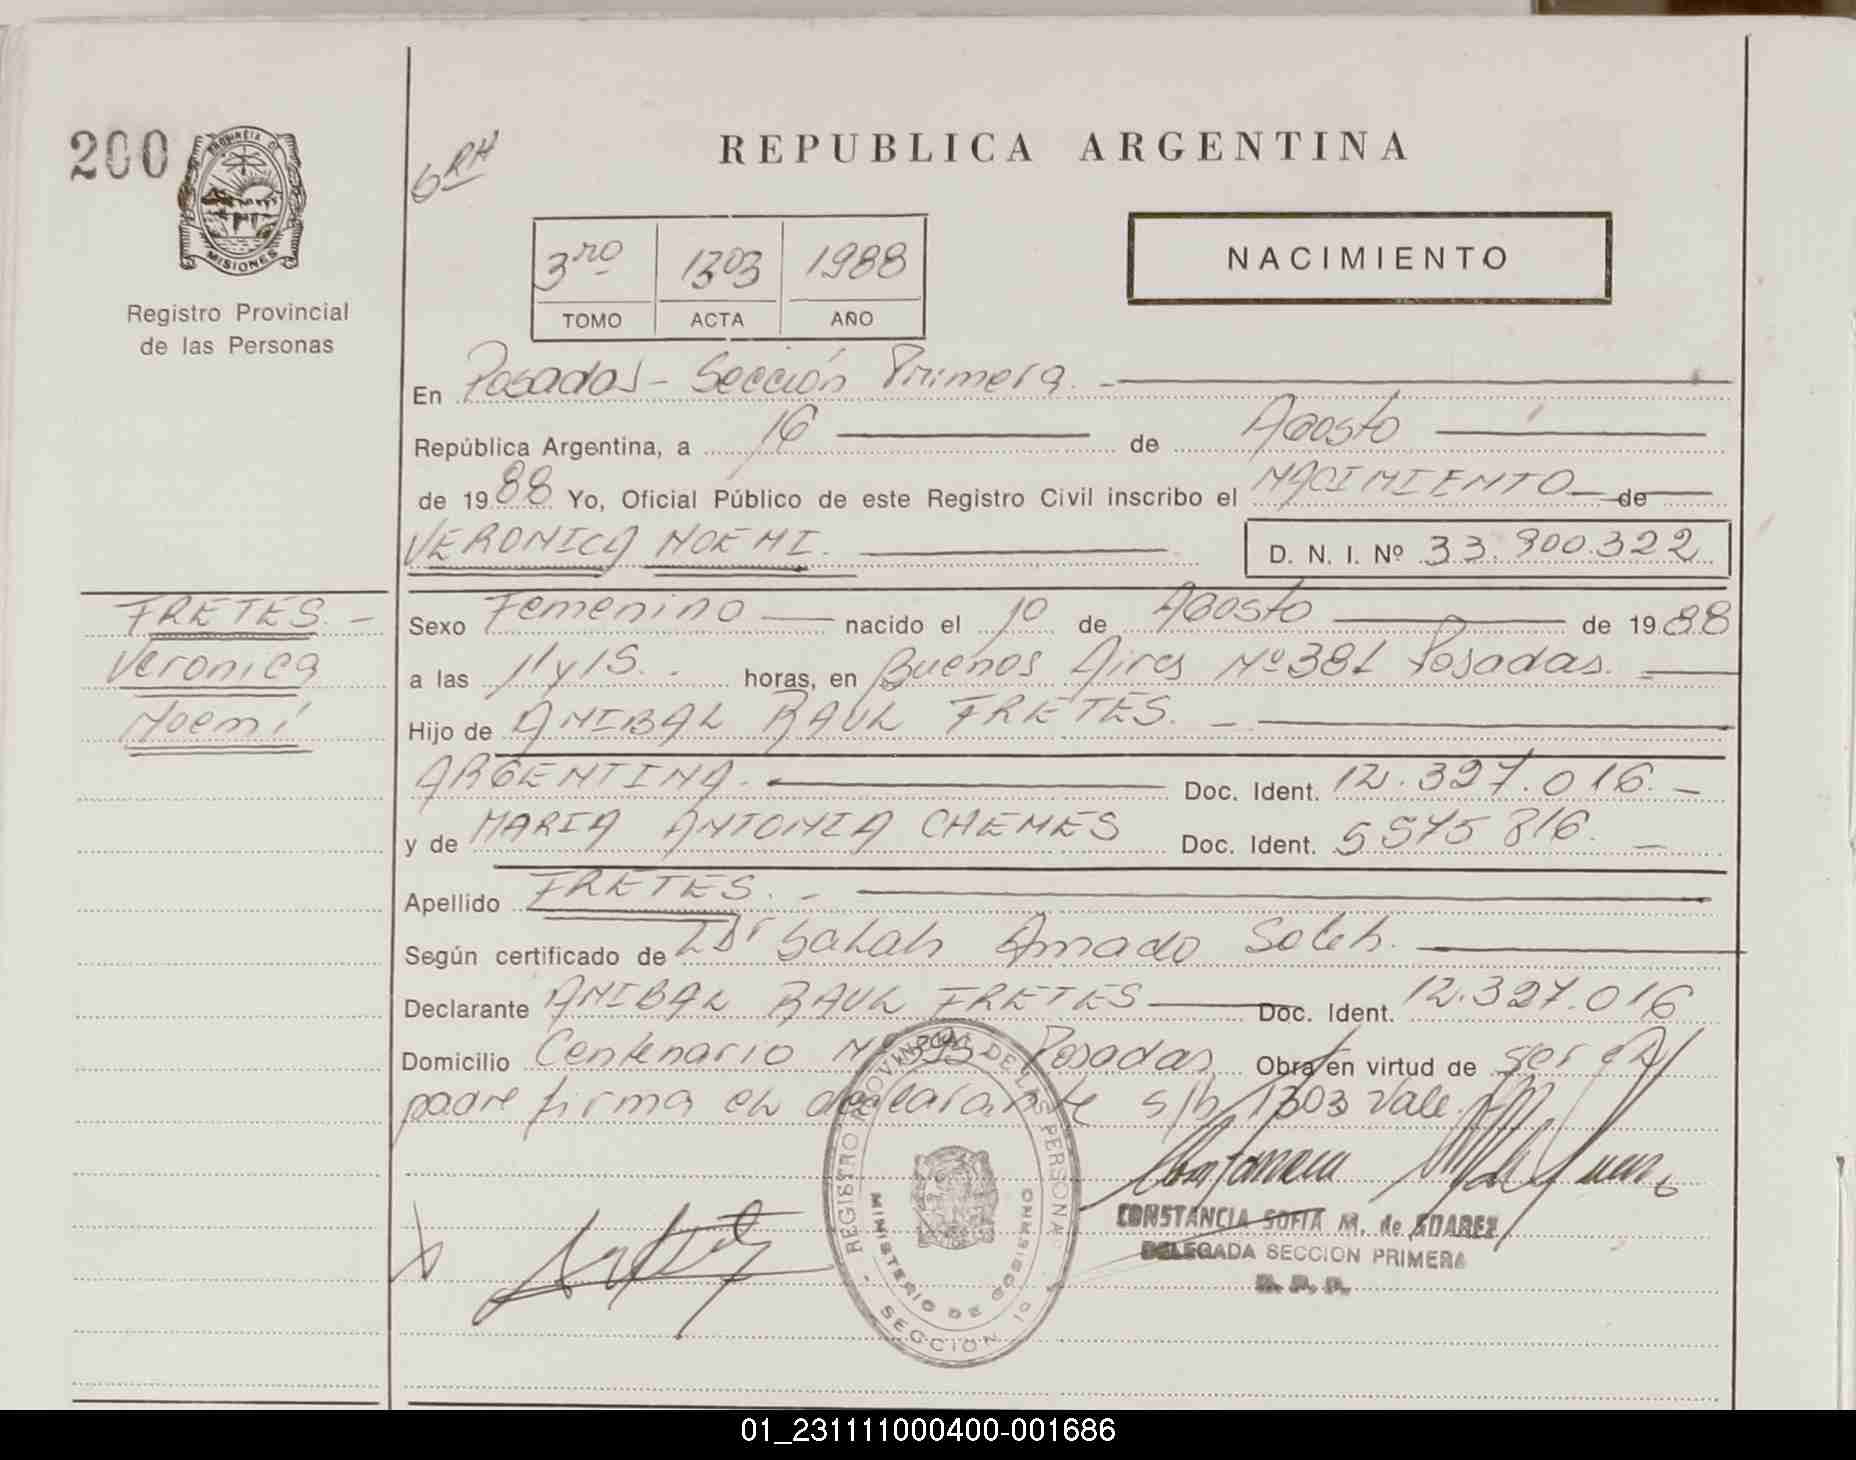 200
PROVINCIA D
MISIONES
Registro Provincial
de las Personas
REPUBLICA ARGENTINA
3ro 1303 1988
TOMO ACTA AÑO
NACIMIENTO
En Posadas - Sección Primera. -
República Argentina, a 16 de Agosto
de 1988 Yo, Oficial Público de este Registro Civil inscribo el NACIMIENTO de
VERONICA NOEMI. D. N. I. Nº 33.900.322
FRETES. -
Veronica
Noemí
Sexo Femenino nacido el 10 de Agosto de 1988
a las 11 y 15. horas, en Buenos Aires Nº 381 Posadas.
Hijo de ANIBAL RAUL FRETES. -
ARGENTINA. Doc. Ident. 12.327.016. -
y de MARIA ANTONIA CHEMES Doc. Ident. 5575816. -
Apellido FRETES. -
Según certificado de Dr Salah Amado Saleh.
Declarante ANIBAL RAUL FRETES Doc. Ident. 12.327.016
Domicilio Centenario Nº Posadas Obra en virtud de ser el
padre firma el declarante s/b 1303 Vale.
REGISTRO PROVINCIAL DE LAS PERSONAS
MINISTERIO DE GOBIERNO
SECCION 1º
CONSTANCIA SOFIA M. de SUAREZ
DELEGADA SECCION PRIMERA
01_231111000400-001686